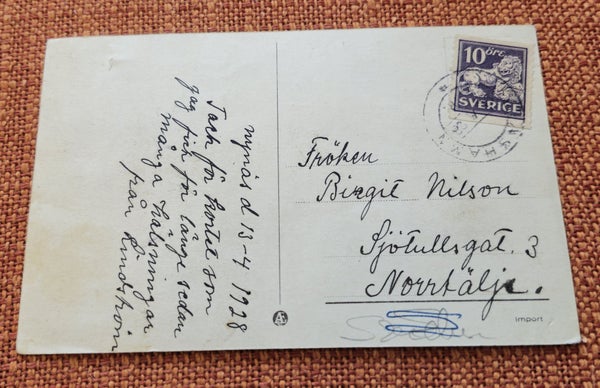 Nynäs d 13-4 1928
Tack för kortet som
jag fick för länge sedan
många hälsningar
från
10 ÖRE
SVERIGE
Fröken
Birgit Nilson
Sjötullsgat. 3
Norrtälje.
import